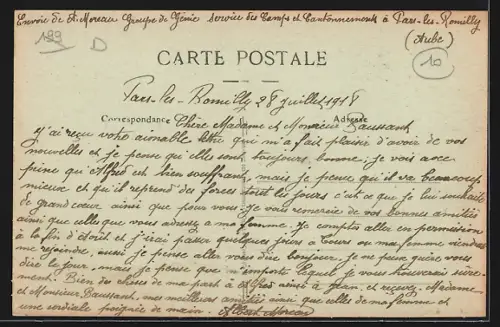 Envoie de A. Moreau Groupe de Génie service des Camps et Cantonnements à Pars-les-Romilly
(Aube)
199
D
10
CARTE POSTALE
Pars-les-Romilly 28 juillet 1918
Correspondance Adresse
Chère Madame et Monsieur Baussant
J'ai reçu votre aimable lettre que m'a fait plaisir d'avoir de vos
nouvelles et je pense qu'elles sont toujours bonne, je vois avec
peine qu'Alfred est bien souffrant, mais je pense qu'il va beaucoup
mieux et qu'il reprend des forces tout les jours c'est ce que je lui souhaite
de grand cœur ainsi que pour vous. Je vous remercie de vos bonnes amitiés
ainsi que celles que vous adressez a ma femme. Je comptes aller en permission
à la fin d'Août et j'irai passer quelques jours a Tours ou ma femme viendras
me rejoindre, aussi je pense aller vous dire bonjour. Je ne peux guère vous
dire le jour, mais je pense que n'importe lequel je vous trouverais sûre-
ment. Bien des choses de ma part à Alfred ainsi à Jean, et recevez Madame
et Monsieur Baussant, mes meilleurs amitiés ainsi que celles de ma femme et
une cordiale poignée de main. Albert Moreau